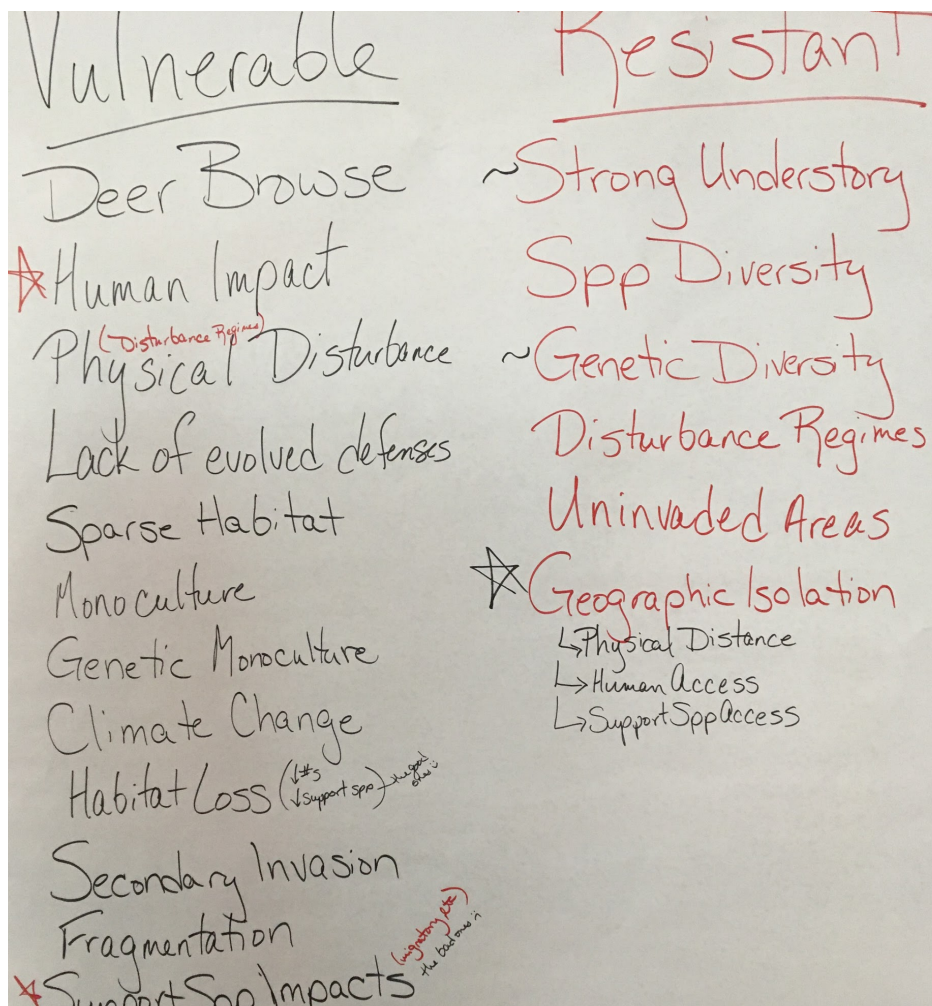 Vulnerable
Deer Browse
Human Impact
(Disturbance Regimes)
Physical Disturbance
Lack of evolved defenses
Sparse Habitat
Monoculture
Genetic Monoculture
Climate Change
Habitat Loss (↓#s ↓support spp) → the good ones :)
Secondary Invasion
Fragmentation
Support Spp Impacts (migratory, etc) the bad ones :(
Resistant
~Strong Understory
Spp Diversity
~Genetic Diversity
Disturbance Regimes
Uninvaded Areas
Geographic Isolation
↳Physical Distance
↳Human Access
↳Support Spp Access